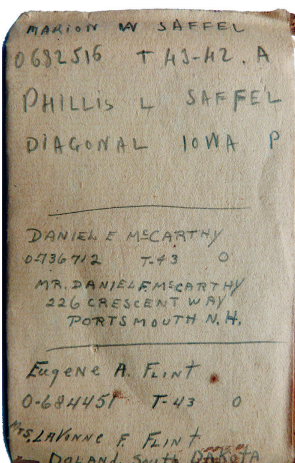 MARION W SAFFEL
0682516 T 43-42. A
PHILLIS L SAFFEL
DIAGONAL IOWA P
DANIEL E McCARTHY
0-736712 T-43 O
MR. DANIEL F McCARTHY
226 CRESCENT WAY
PORTSMOUTH N.H.
Eugene A. FLINT
0-684451 T-43 O
Mrs LaVonne F FLINT
DOLAND, South DAKOTA